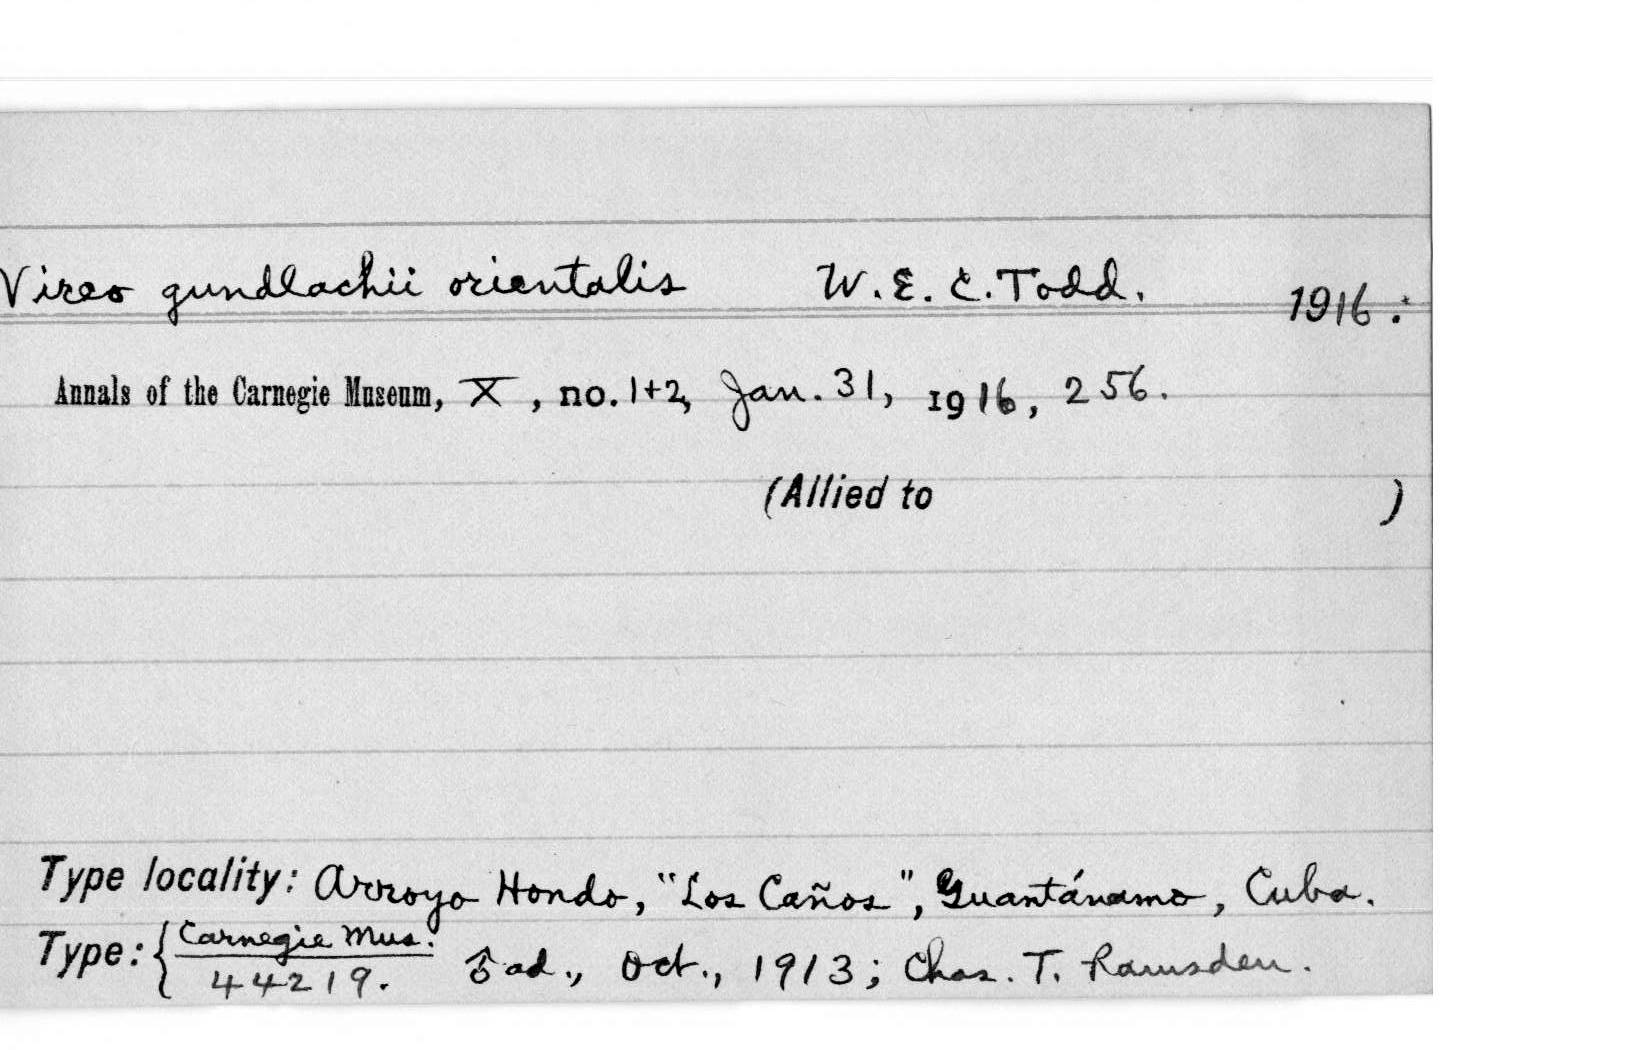 Vireo gundlachii orientalis W. E. C. Todd. 1916:
Annals of the Carnegie Museum, X, no. 1+2, Jan. 31, 1916, 256.
(Allied to )
Type locality: Arroyo Hondo, "Los Caños", Guantánamo, Cuba.
Type: { Carnegie Mus.
44219. ♂ ad., Oct., 1913; Chas. T. Ramsden.